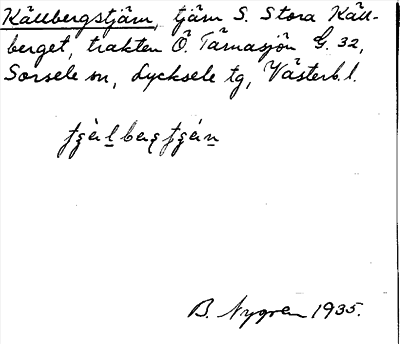 Källbergstjärn, tjärn S. Stora Käll-
berget, trakten Ö. Tärnasjön G. 32,
Sorsele sn, Lycksele tg, Västerb. l.
B. Nygren 1935.